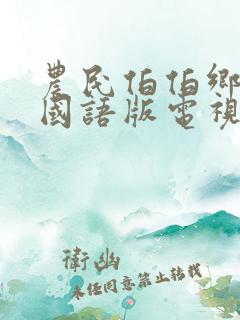 農民伯伯鄉
國語版電視
衛幽
未任同意禁止转载